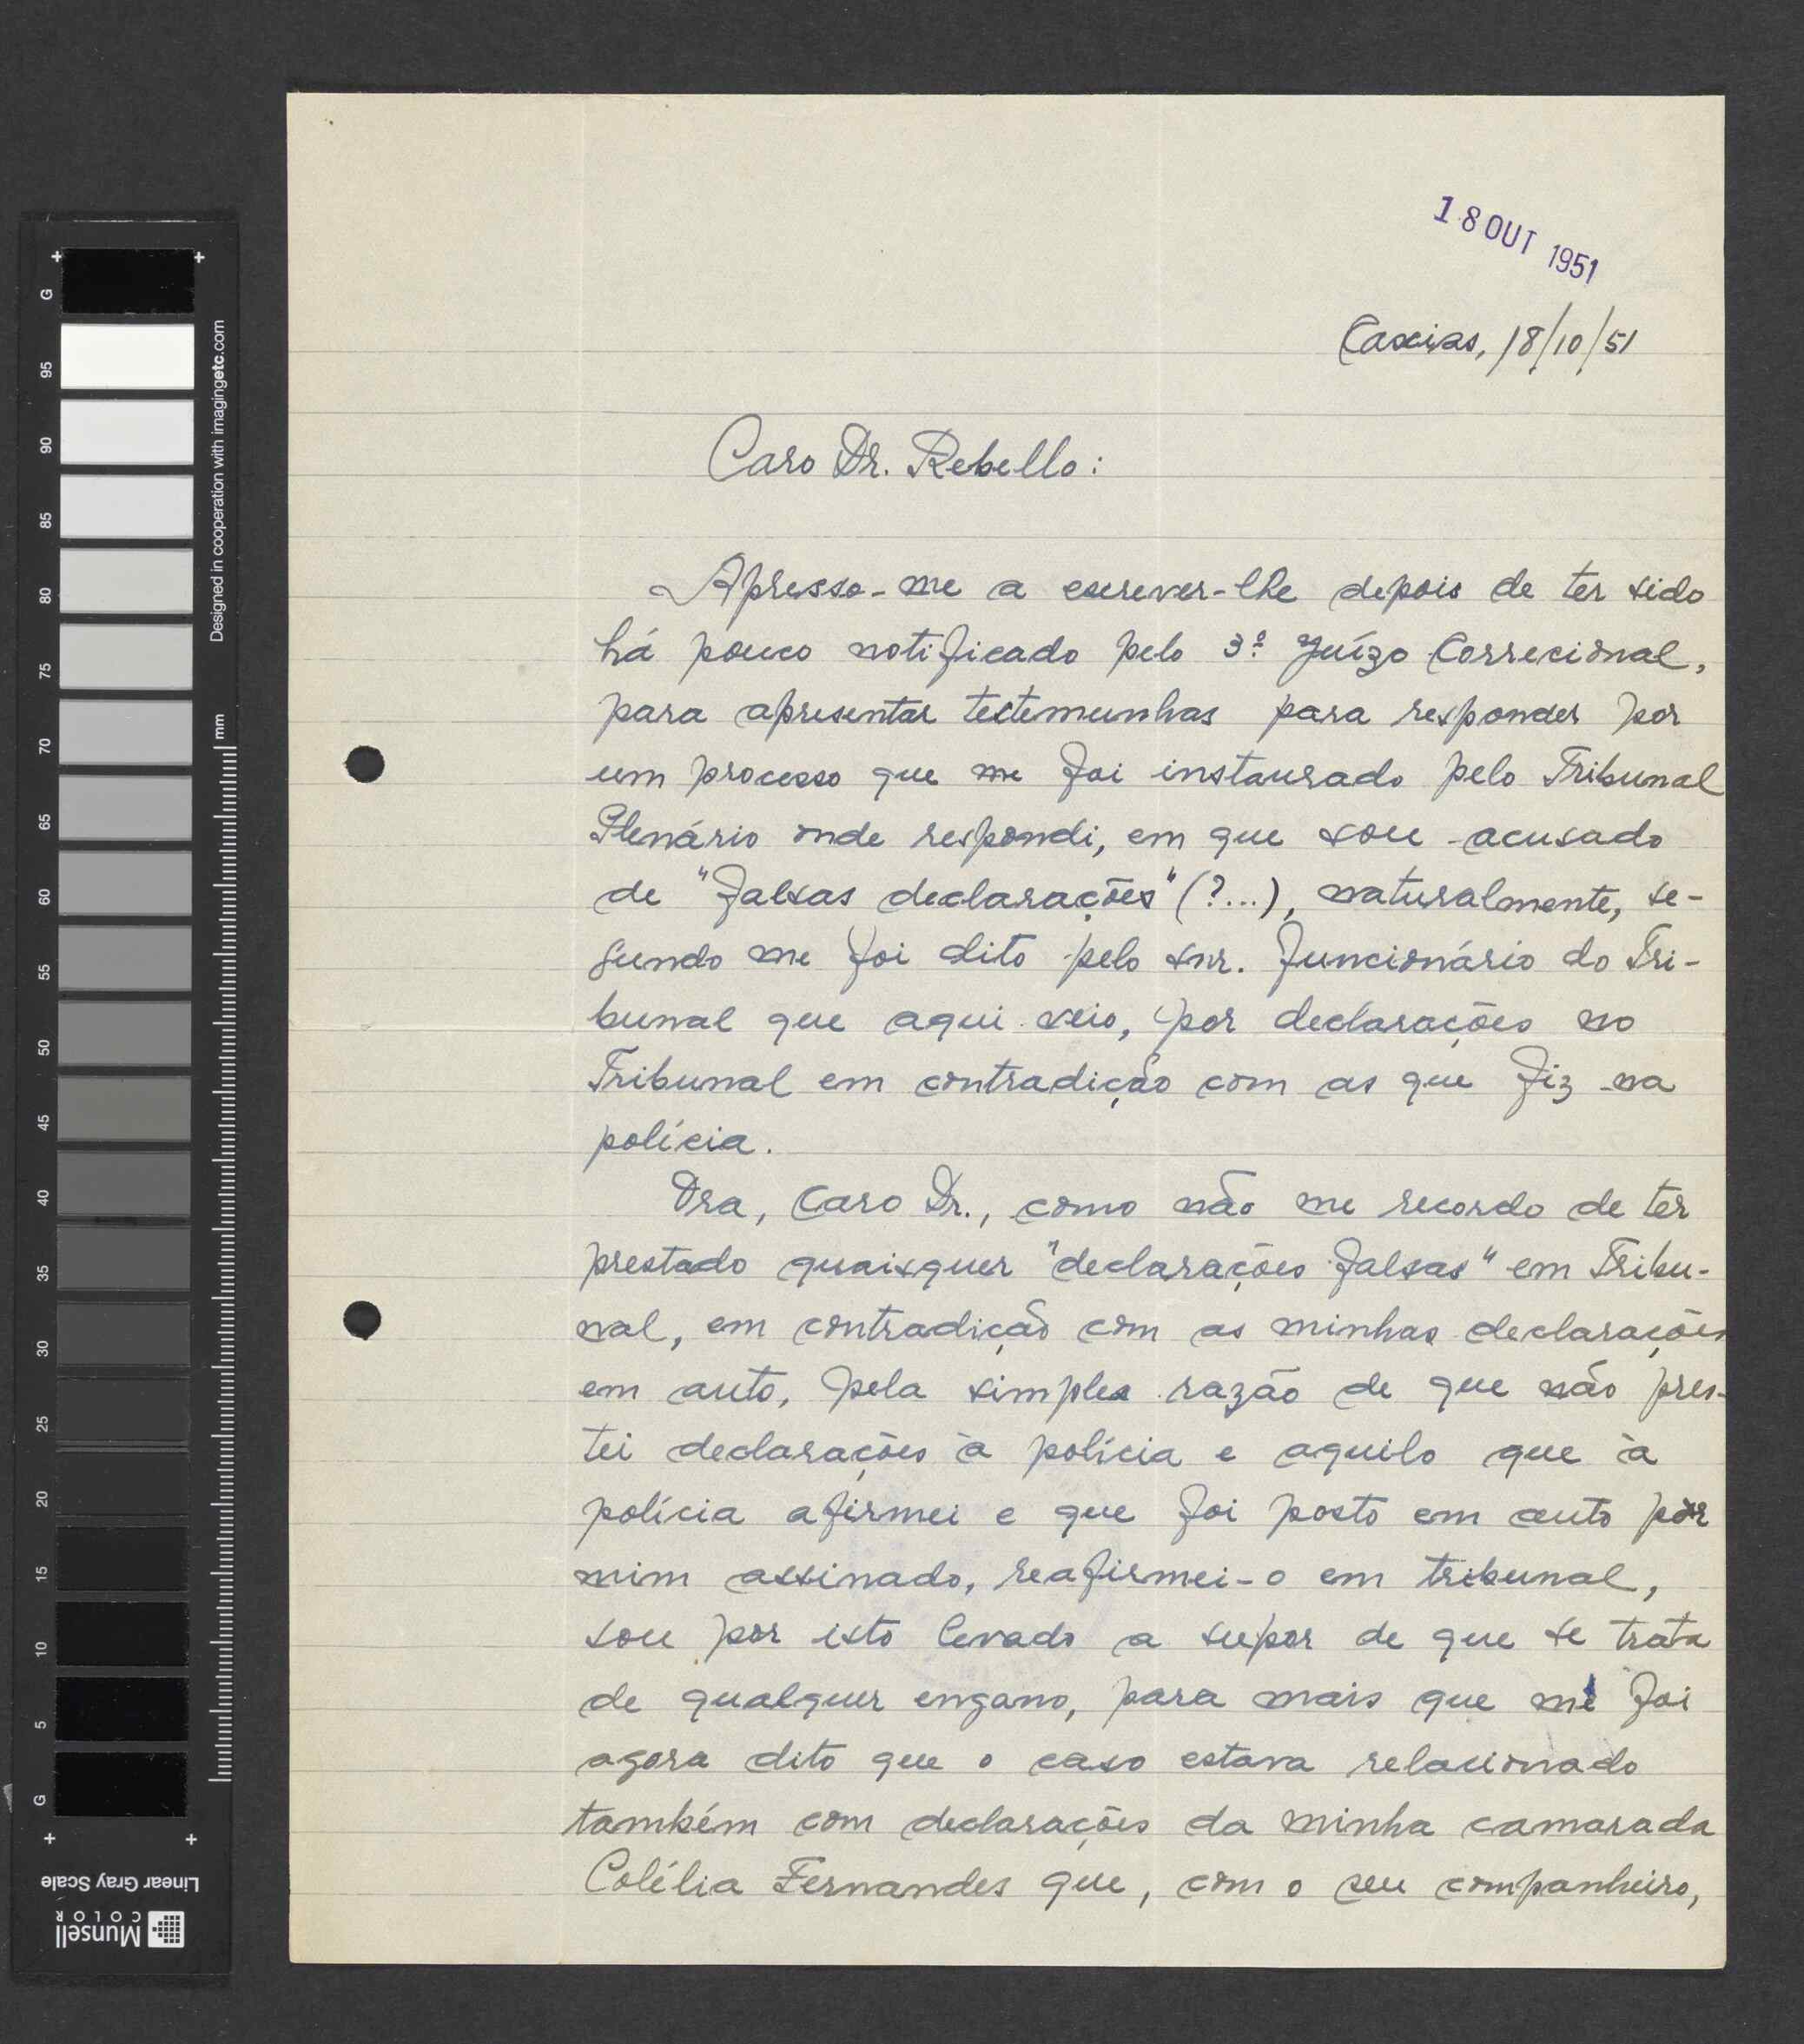 18 OUT 1951
Caxias, 18/10/51
Caro Dr. Rebello:
Apresso-me a escrever-lhe depois de ter sido
há pouco notificado pelo 3º Juízo Correcional,
para apresentar testemunhas para responder por
um processo que me foi instaurado pelo Tribunal
Plenário onde respondi, em que sou acusado
de "falsas declarações" (?...), naturalmente, se-
gundo me foi dito pelo snr. funcionário do Tri-
bunal que aqui veio, por declarações no
Tribunal em contradição com as que fiz na
polícia.
Ora, caro Dr., como não me recordo de ter
prestado quaisquer "declarações falsas" em Tribu-
nal, em contradição com as minhas declarações
em auto, pela simples razão de que não pres-
tei declarações à polícia e aquilo que à
polícia afirmei e que foi posto em auto por
mim assinado, reafirmei-o em tribunal,
sou por isto levado a supor de que se trata
de qualquer engano, para mais que me foi
agora dito que o caso estava relacionado
também com declarações da minha camarada
Colélia Fernandes que, com o seu companheiro,
G 95 90 85 80 75 70 65 60 55 50 45 40 35 30 25 20 15 10 5 G
Designed in cooperation with imagingetc.com
mm
Linear Gray Scale
Munsell
COLOR